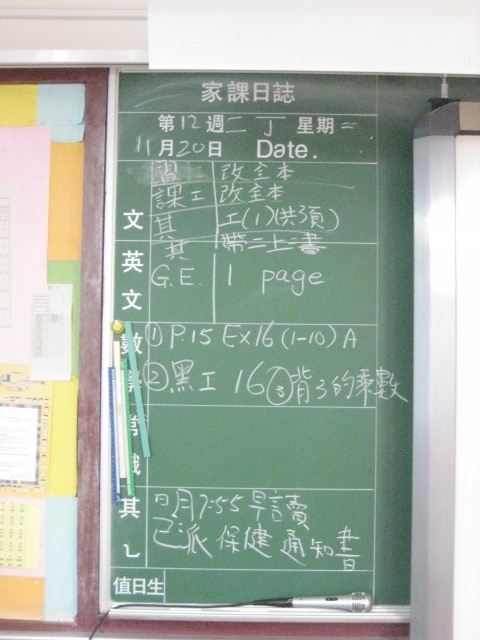 家課日誌
第12週二丁 星期二
11月20日 Date.
改全本
課工 改全本
其 工(1)(共3項)
其 帶二上二書
文
英文 G.E. 1 page
數學 ① P.15 Ex16 (1-10) A
② 黑工 16 ③ 背3的乘數
常識
其 7:55早讀
已派保健通知書
值日生